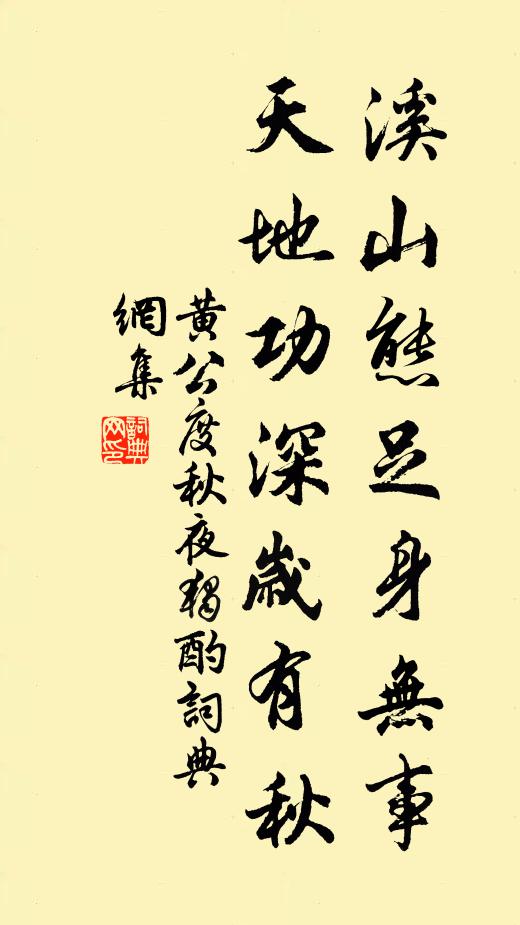 溪山熊足身無事
天地功深歲有秋
黄公度秋夜獨酌詞典
網集
詞典
网印